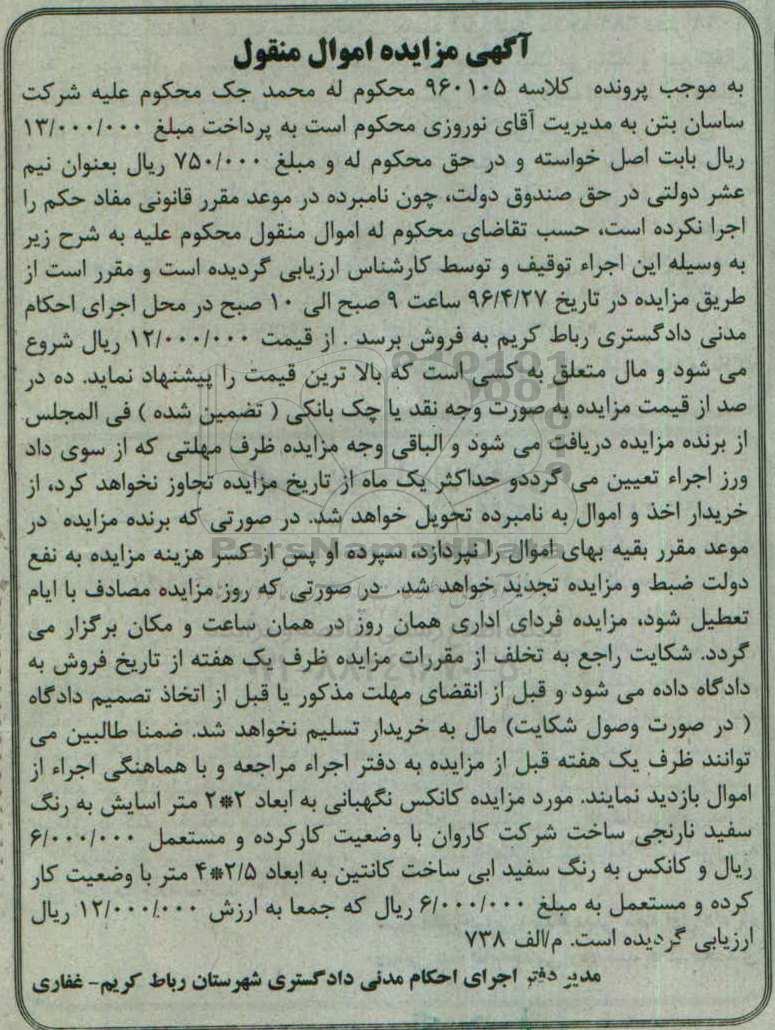 آگهی مزایده اموال منقول
به موجب پرونده کلاسه ۹۶۰۱۰۵ محکوم له محمد جک محکوم علیه شرکت
ساسان بتن به مدیریت آقای نوروزی محکوم است به پرداخت مبلغ ۱۳/۰۰۰/۰۰۰
ریال بابت اصل خواسته و در حق محکوم له و مبلغ ۷۵۰/۰۰۰ ریال بعنوان نیم
عشر دولتی در حق صندوق دولت، چون نامبرده در موعد مقرر قانونی مفاد حکم را
اجرا نکرده است، حسب تقاضای محکوم له اموال منقول محکوم علیه به شرح زیر
به وسیله این اجراء توقیف و توسط کارشناس ارزیابی گردیده است و مقرر است از
طریق مزایده در تاریخ ۹۶/۴/۲۷ ساعت ۹ صبح الی ۱۰ صبح در محل اجرای احکام
مدنی دادگستری رباط کریم به فروش برسد . از قیمت ۱۲/۰۰۰/۰۰۰ ریال شروع
می شود و مال متعلق به کسی است که بالا ترین قیمت را پیشنهاد نماید. ده در
صد از قیمت مزایده به صورت وجه نقد یا چک بانکی ( تضمین شده ) فی المجلس
از برنده مزایده دریافت می شود و الباقی وجه مزایده ظرف مهلتی که از سوی داد
ورز اجراء تعیین می گرددو حداکثر یک ماه از تاریخ مزایده تجاوز نخواهد کرد، از
خریدار اخذ و اموال به نامبرده تحویل خواهد شد. در صورتی که برنده مزایده در
موعد مقرر بقیه بهای اموال را نپردازد، سپرده او پس از کسر هزینه مزایده به نفع
دولت ضبط و مزایده تجدید خواهد شد. در صورتی که روز مزایده مصادف با ایام
تعطیل شود، مزایده فردای اداری همان روز در همان ساعت و مکان برگزار می
گردد. شکایت راجع به تخلف از مقررات مزایده ظرف یک هفته از تاریخ فروش به
دادگاه داده می شود و قبل از انقضای مهلت مذکور یا قبل از اتخاذ تصمیم دادگاه
( در صورت وصول شکایت) مال به خریدار تسلیم نخواهد شد. ضمنا طالبین می
توانند ظرف یک هفته قبل از مزایده به دفتر اجراء مراجعه و با هماهنگی اجراء از
اموال بازدید نمایند. مورد مزایده کانکس نگهبانی به ابعاد ۲*۲ متر اسایش به رنگ
سفید نارنجی ساخت شرکت کاروان با وضعیت کارکرده و مستعمل ۶/۰۰۰/۰۰۰
ریال و کانکس به رنگ سفید ابی ساخت کانتین به ابعاد ۲/۵*۴ متر با وضعیت کار
کرده و مستعمل به مبلغ ۶/۰۰۰/۰۰۰ ریال که جمعا به ارزش ۱۲/۰۰۰/۰۰۰ ریال
ارزیابی گردیده است. م/الف ۷۳۸
مدیر دفتر اجرای احکام مدنی دادگستری شهرستان رباط کریم- غفاری
ParsNamadData